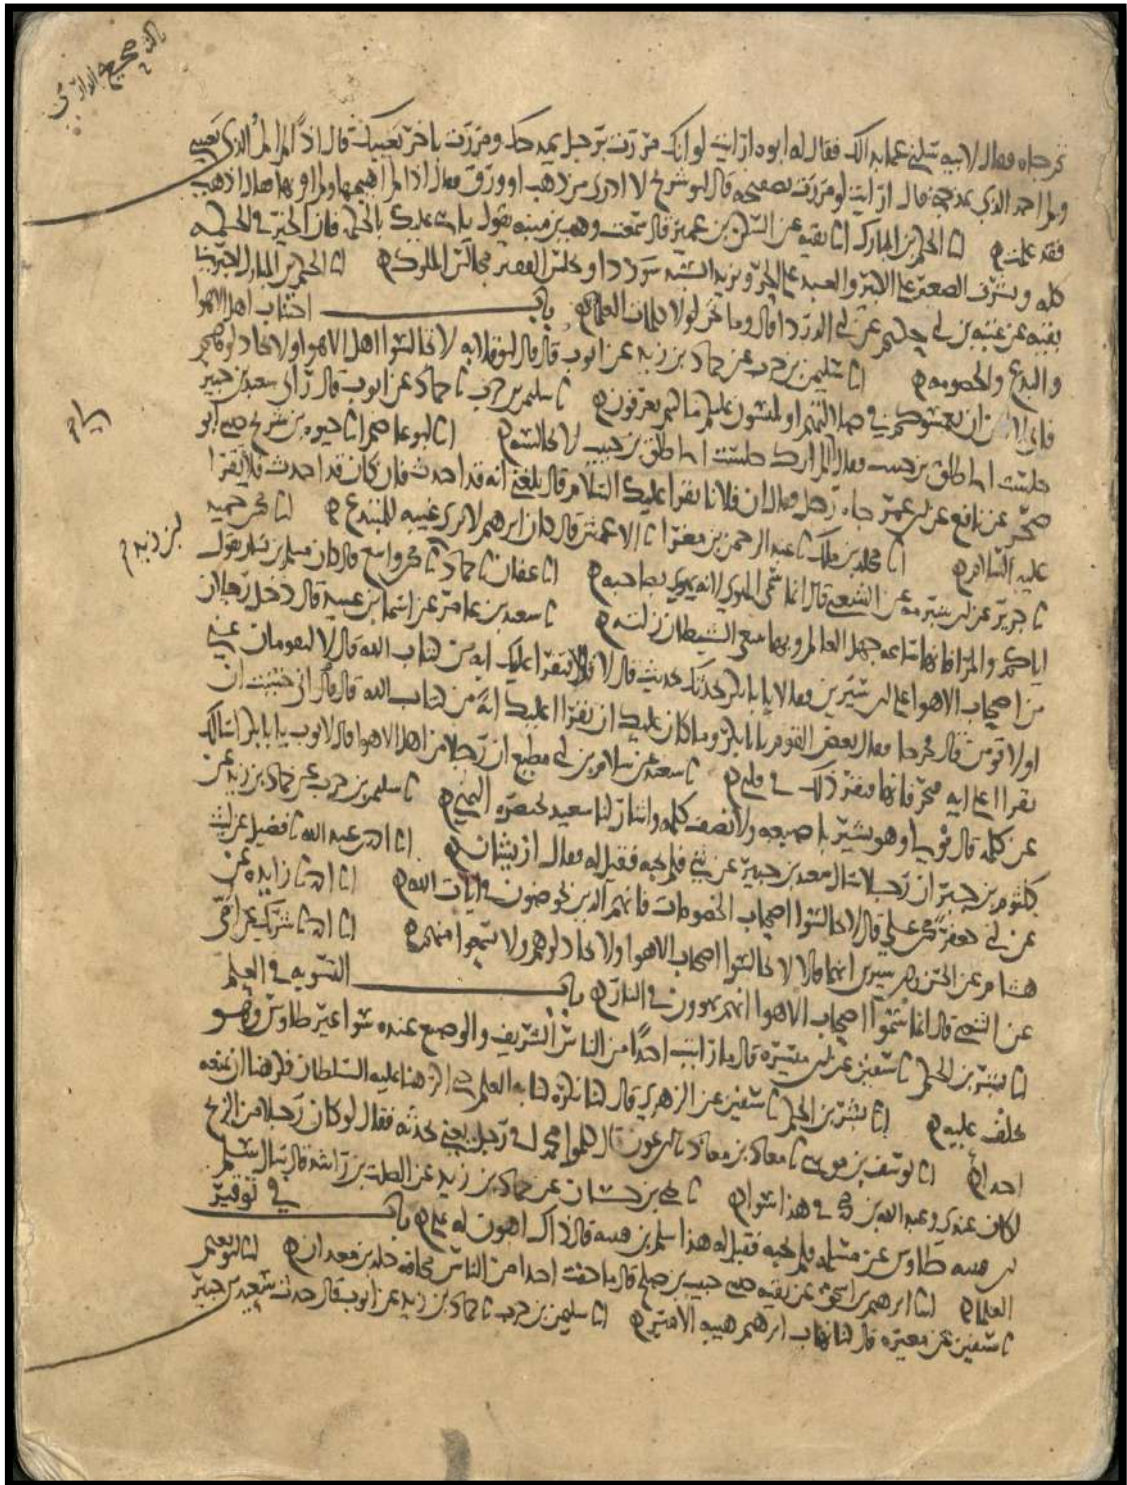 ثم جاه فقال لابنه سلني عما بدا لك فقال له ابوه ارايت لو انك مررت برجل يمدحك ومررت باخر يعيبك قال اذا لم الم الذي يعيبني
ولم احمد الذي يمدحني قال ارايت لو مررت بصفيحة قال ابو شريح لا ادري من ذهب او ورق فقال اذا لم اهيجها ولم اقربها فقال اذهب
فقد علمت انا الحكم بن المبارك انا بقيه عن السكن بن عمير قال سمعت وهب بن منبه يقول يا بني عليك بالحكمه فان الخير في الحكمه
كله وتشرف الصغير على الكبير والعبد على الحر وتزيد السيد سوددا وتجلس الفقير مجالس الملوك انا الحكم بن المبارك اخبرنا
بقيه عن عتبه بن ابي حكيم عن ابي الدردا قال وما نحن لولا كلمات العلما باب اجتناب اهل الاهوا
والبدع والخصومه انا سليمن بن حرب عن حماد بن زيد عن ايوب قال قال ابو قلابه لا تجالسوا اهل الاهوا ولا تجادلوهم
فاني لا امن ان يغمسوكم في ضلالتهم او يلبسون عليكم ما كنتم تعرفون نا سليمن بن حرب نا حماد عن ايوب قال راني سعيد بن جبير
جلست الى طلق بن حبيب فقال الم ارك جلست الى طلق بن حبيب لا تجالسه انا ابو عاصم انا حيوه بن شريح حدثني ابو
صخر عن نافع عن ابن عمر جاه رجل فقال ان فلانا يقرا عليك السلام قال بلغني انه قد احدث فان كان قد احدث فلا تقرا
عليه السلام انا مخلد بن ملك نا عبد الرحمن بن مغرا نا الاعمش قال كان ابرهيم لا يرى غيبه للمبتدع انا محمد بن حميد
نا جرير عن ابن شبرمه عن الشعبي قال انما سمي الهوى لانه يهوي بصاحبه انا عفان نا حماد بن زيد نا محمد بن واسع قال كان مسلم بن يسار يقول
اياكم والمرا فانها ساعه جهل العالم وبها يبتغي الشيطان زلته نا سعيد بن عامر عن اسما بن عبيد قال دخل رجلان
من اصحاب الاهوا على ابن سيرين فقالا يا بابكر نحدثك بحديث قال لا قالا فنقرا عليك ايه من كتاب الله قال لا لتقومان عني
او لاقومن قال فخرجا فقال بعض القوم يا بابكر وما كان عليك ان يقرا عليك ايه من كتاب الله قال اني خشيت ان
يقرا علي ايه فيحرفانها فيقر ذلك في قلبي نا سعيد عن سلام بن ابي مطيع ان رجلا من اهل الاهوا قال لايوب يا بابكر اسالك
عن كلمه قال فولى وهو يشير باصبعه ولا نصف كلمه واشار لنا سعيد بخنصره اليمنى نا سليمن بن حرب عن حماد بن زيد عن
كلثوم بن جبر ان رجلا سال سعيد بن جبير عن شي فلم يجبه فقيل له فقال ازيشان انا احمد بن عبد الله نا فضيل عن ليث
عن ابي جعفر محمد بن علي قال لا تجالسوا اصحاب الخصومات فانهم الذين يخوضون في ايات الله انا احمد نا زايده عن
هشام عن الحسن وابن سيرين انهما قالا لا تجالسوا اصحاب الاهوا ولا تجادلوهم ولا تسمعوا منهم انا احمد نا شريك عن امي
عن الشعبي قال انما سموا اصحاب الاهوا انهم يهوون في النار باب التسويه في العلم
انا بشر بن الحكم نا سفين عن ابن ميسره قال ما رايت احدا من الناس الشريف والوضيع عنده سوا غير طاوس وهو
يحلف عليه انا بشر بن الحكم نا سفين عن الزهري قال كنا نكره كتابه العلم حتى اكرهنا عليه السلطان فكرهنا ان نمنعه
احدا انا يوسف بن موسى نا معاذ بن معاذ نا ابن عون قال كلموا محمدا في رجل يعني يحدثه فقال لو كان رجلا من الزنج
لكان عندي وعبد الله بن محمد في هذا سوا نا علي بن حسان عن حماد بن زيد عن الصلت بن راشد قال سال سلم
ابن قتيبه طاوس عن مسله فلم يجبه فقيل له هذا سلم بن قتيبه قال ذاك اهون له علي باب في توقير
العلما انا ابرهيم بن اسحق عن بقيه حدثني حبيب بن صلح قال ما خفت احدا من الناس مخافه خلد بن معدان انا ابو نعيم
نا سفين عن مغيره قال كنا نهاب ابرهيم هيبه الامير انا سليمن بن حرب نا حماد بن زيد عن ايوب قال حدث سعيد بن جبير
بن زيد